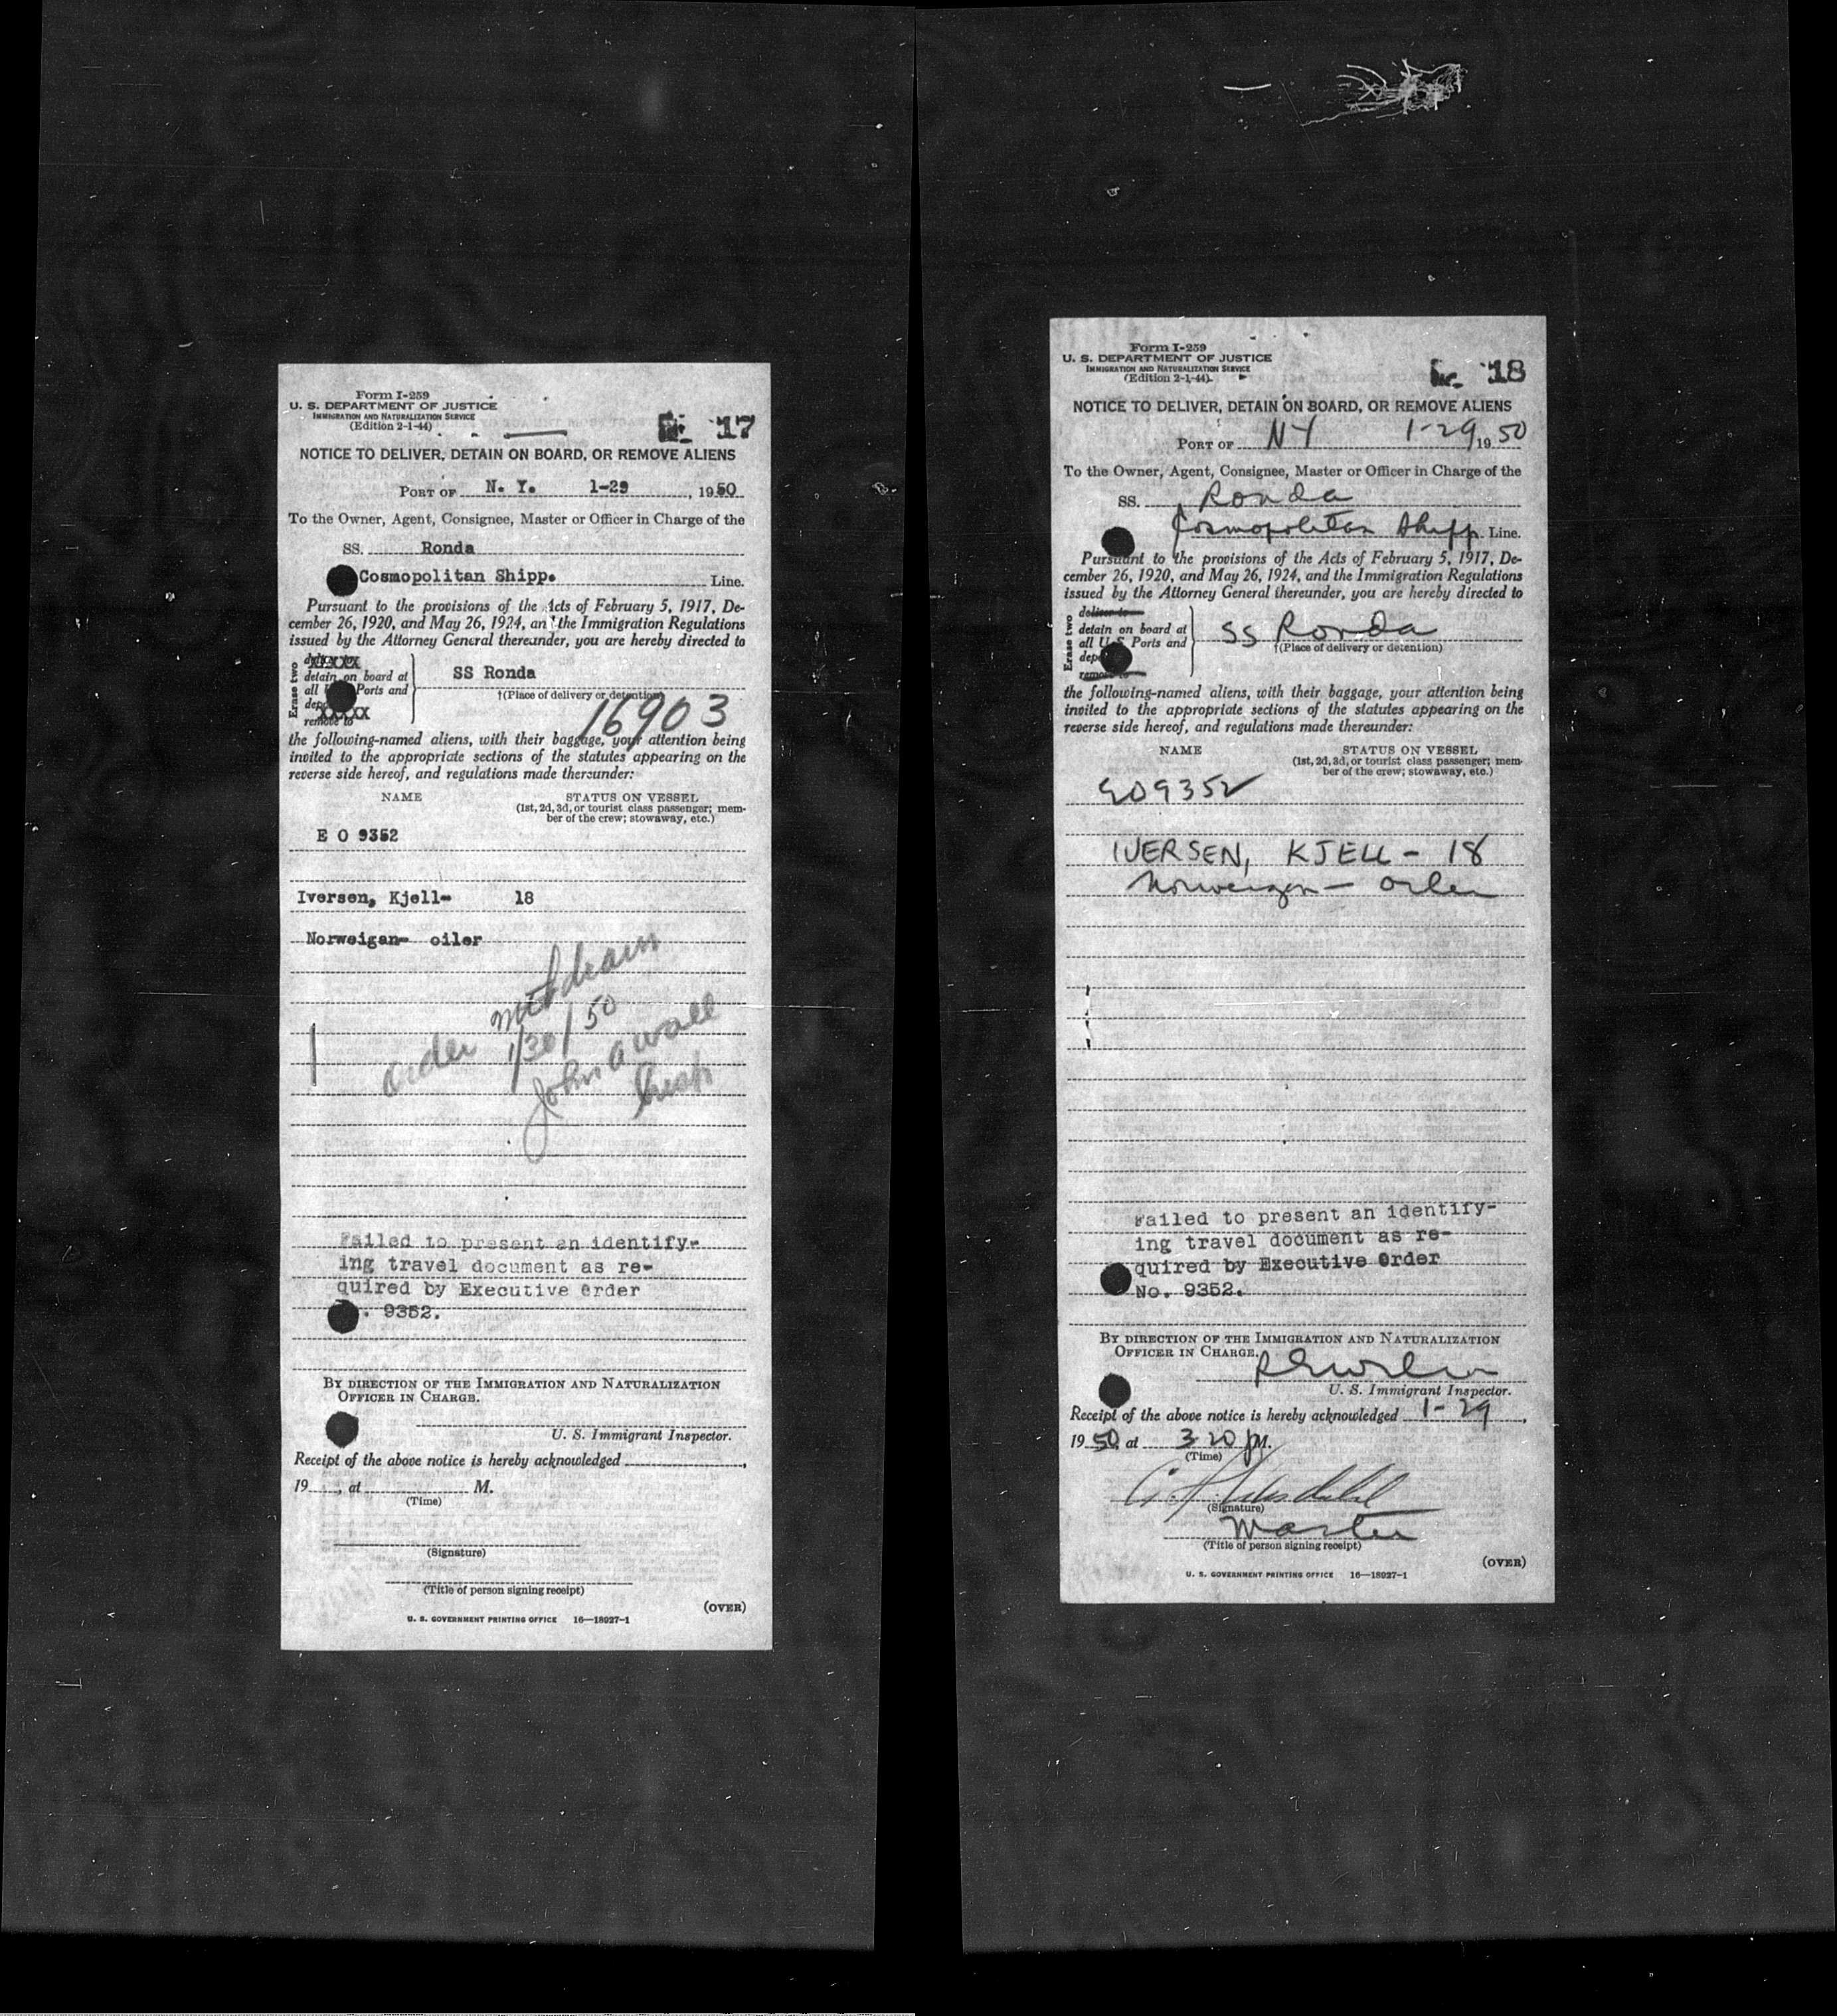 Form I-259
U. S. DEPARTMENT OF JUSTICE
IMMIGRATION AND NATURALIZATION SERVICE
(Edition 2-1-44)
17
NOTICE TO DELIVER, DETAIN ON BOARD, OR REMOVE ALIENS
PORT OF N. Y. 1-29, 1950
To the Owner, Agent, Consignee, Master or Officer in Charge of the
SS. Ronda
Cosmopolitan Shipp. Line.
Pursuant to the provisions of the Acts of February 5, 1917, De-
cember 26, 1920, and May 26, 1924, and the Immigration Regulations
issued by the Attorney General thereunder, you are hereby directed to
Erase two
detain on board at
all Ports and
remove to
SS Ronda
†(Place of delivery or detention)
16903
the following-named aliens, with their baggage, your attention being
invited to the appropriate sections of the statutes appearing on the
reverse side hereof, and regulations made thereunder:
NAME STATUS ON VESSEL
(1st, 2d, 3d, or tourist class passenger; mem-
ber of the crew; stowaway, etc.)
E O 9352
Iversen, Kjell- 18
Norweigan- oiler
order
1/30/50
John A Wall
Insp
Failed to present an identify-
ing travel document as re-
quired by Executive Order
. 9352.
BY DIRECTION OF THE IMMIGRATION AND NATURALIZATION
OFFICER IN CHARGE.
U. S. Immigrant Inspector.
Receipt of the above notice is hereby acknowledged
19 , at M.
(Time)
(Signature)
(Title of person signing receipt)
(OVER)
U. S. GOVERNMENT PRINTING OFFICE 16—18927-1
Form I-259
U. S. DEPARTMENT OF JUSTICE
IMMIGRATION AND NATURALIZATION SERVICE
(Edition 2-1-44)
18
NOTICE TO DELIVER, DETAIN ON BOARD, OR REMOVE ALIENS
PORT OF NY 1-29, 1950
To the Owner, Agent, Consignee, Master or Officer in Charge of the
SS. Ronda
Cosmopolitan Shipp. Line.
Pursuant to the provisions of the Acts of February 5, 1917, De-
cember 26, 1920, and May 26, 1924, and the Immigration Regulations
issued by the Attorney General thereunder, you are hereby directed to
Erase two
deliver to
detain on board at
all U.S. Ports and
remove to
SS Ronda
†(Place of delivery or detention)
the following-named aliens, with their baggage, your attention being
invited to the appropriate sections of the statutes appearing on the
reverse side hereof, and regulations made thereunder:
NAME STATUS ON VESSEL
(1st, 2d, 3d, or tourist class passenger; mem-
ber of the crew; stowaway, etc.)
EO 9352
IVERSEN, KJELL - 18
Norweigan - oiler
Failed to present an identify-
ing travel document as re-
quired by Executive Order
No. 9352.
BY DIRECTION OF THE IMMIGRATION AND NATURALIZATION
OFFICER IN CHARGE.
U. S. Immigrant Inspector.
Receipt of the above notice is hereby acknowledged 1-29,
1950, at 3 20 PM.
(Time)
(Signature)
Master
(Title of person signing receipt)
(OVER)
U. S. GOVERNMENT PRINTING OFFICE 16—18927-1